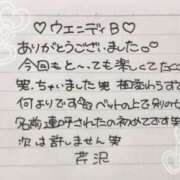 ♡ウェンディB♡
ありがとうございました。♡
今回もと〜っても楽しくてたくさん
笑っちゃいました笑 相変わらずで
何よりです ベットの上で別の女
名前連呼されたの初めてです笑
次は許しません笑
芹沢